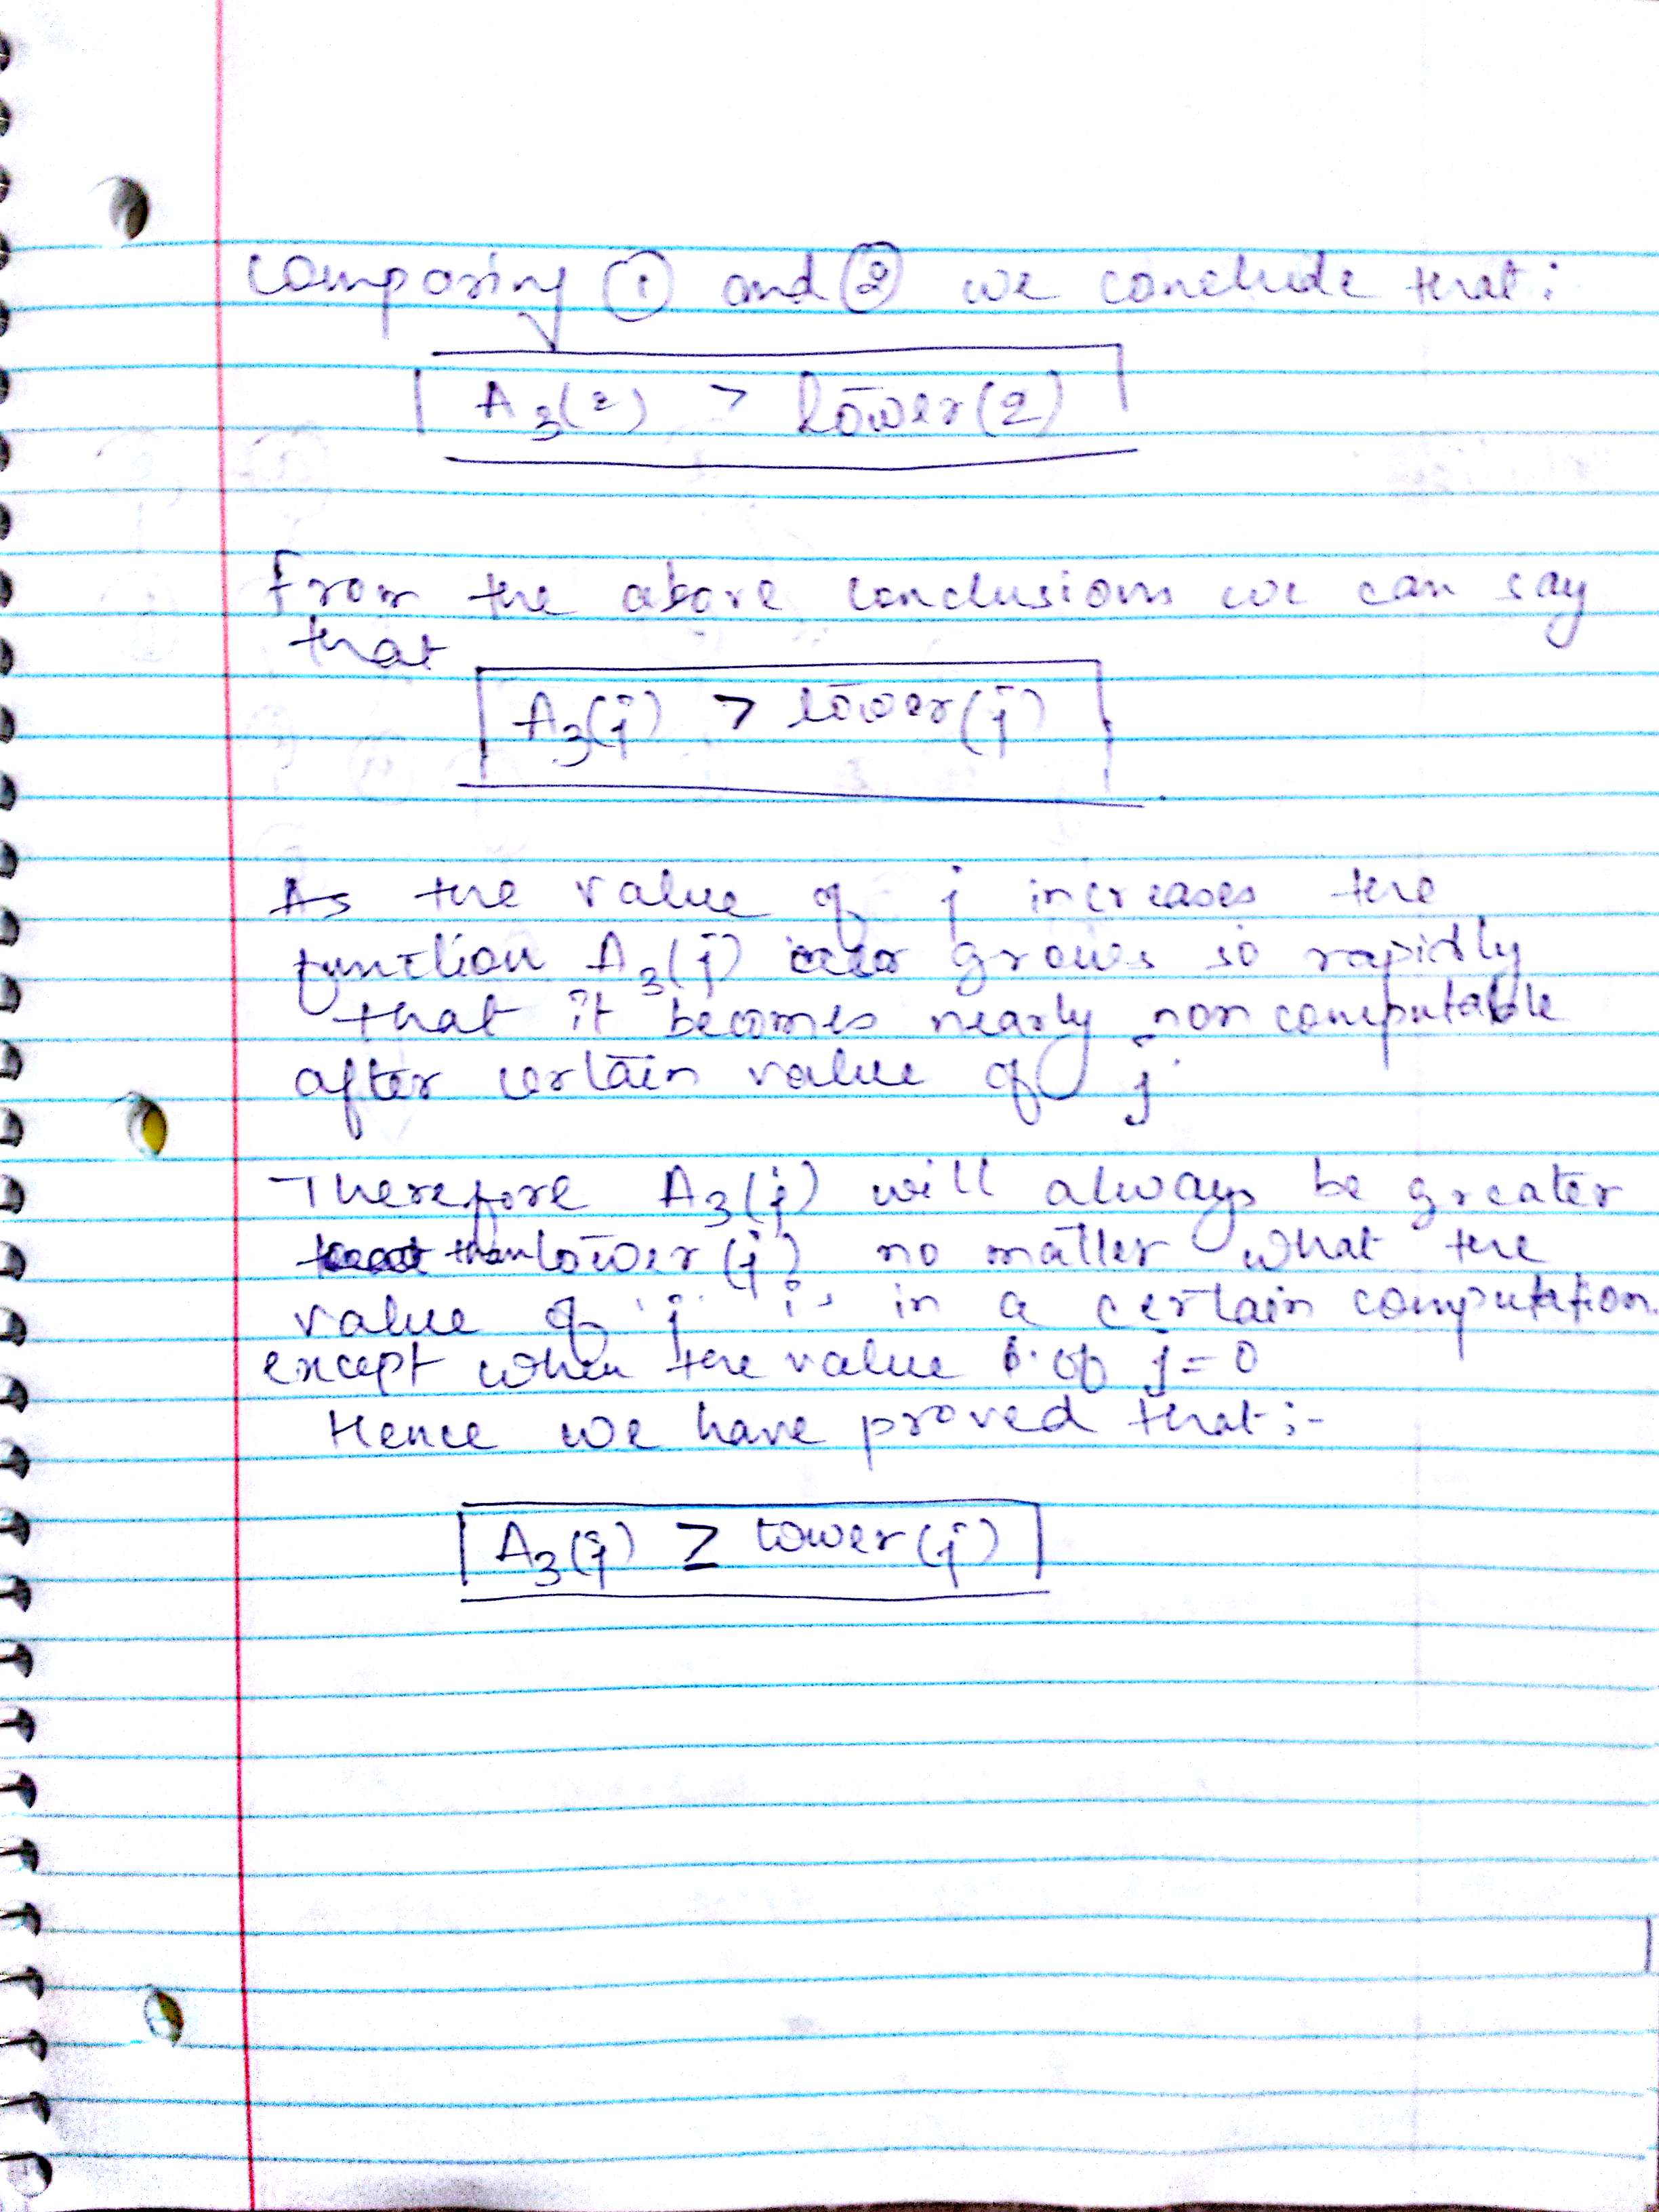 Comparing ① and ② we conclude that:
A₃(2) > tower(2)
From the above conclusions we can say
that
A₃(j) > tower(j)
As the value of j increases the
function A₃(j) grows so rapidly
that it becomes nearly non computable
after certain value of j.
Therefore A₃(j) will always be greater
than tower(j) no matter what the
value of 'j' is in a certain computation.
except when the value of j=0
Hence we have proved that:-
A₃(j) ≥ tower(j)